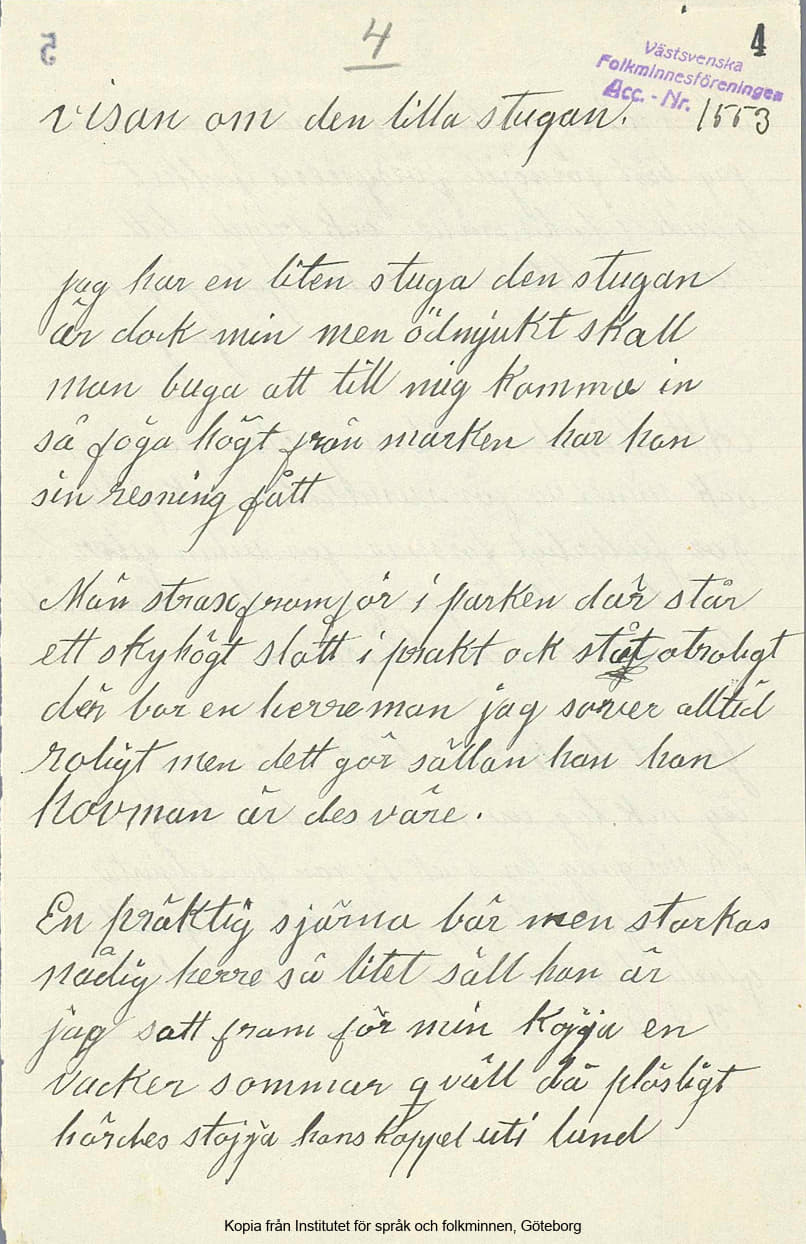 5
4
4
Västsvenska
Folkminnesföreningen
Acc. - Nr. 1553
visan om den lilla stugan.
jag har en liten stuga den stugan
är dock min men ödmjukt skall
man buga att till mig komma in
så föga högt från marken har han
sin resning fått
Män straxframför i parken där står
ett skyhögt slott i prakt ock ståt otroligt
der bor en herreman jag sover alltid
roligt men dett gör sällan han han
hovman är des väre.
En präktig sjärna bär men starkas
nådig herre så litet säll han är
jag satt fram för min kojja en
vacker sommar qväll då plösligt
hördes stojja hans koppel uti lund
Kopia från Institutet för språk och folkminnen, Göteborg